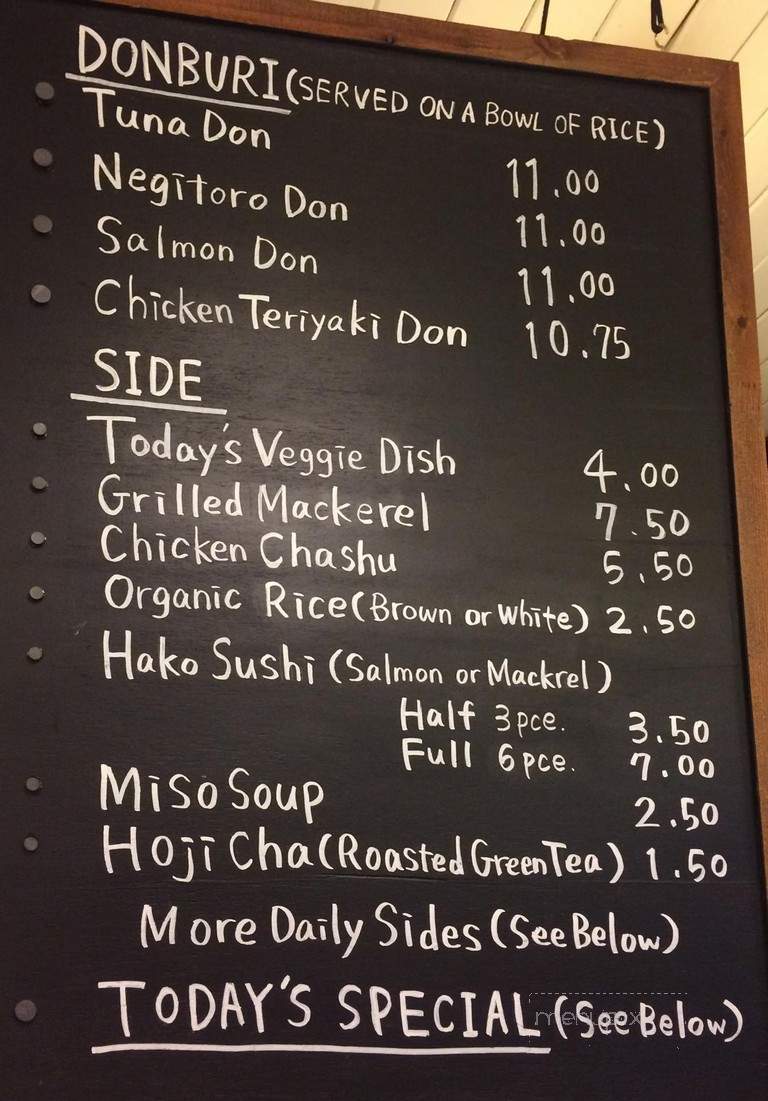 DONBURI (SERVED ON A BOWL OF RICE)
Tuna Don 11.00
Negitoro Don 11.00
Salmon Don 11.00
Chicken Teriyaki Don 10.75
SIDE
Today's Veggie Dish 4.00
Grilled Mackerel 7.50
Chicken Chashu 5.50
Organic Rice (Brown or White) 2.50
Hako Sushi (Salmon or Mackrel)
Half 3 pce. 3.50
Full 6 pce. 7.00
Miso Soup 2.50
Hoji Cha (Roasted Green Tea) 1.50
More Daily Sides (See Below)
TODAY'S SPECIAL (See Below)